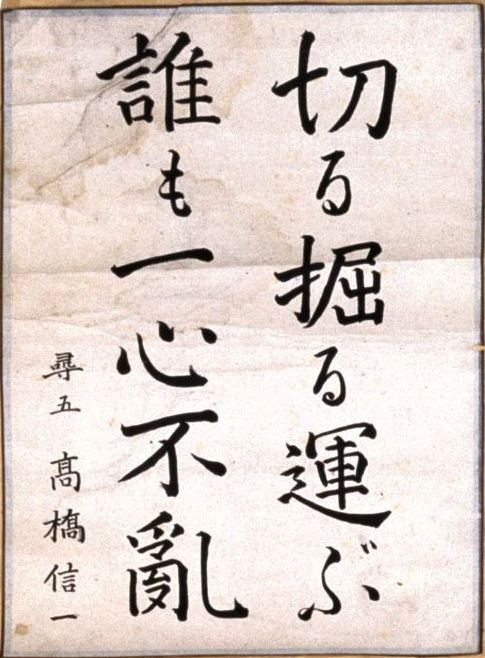 切る掘る運ぶ
誰も一心不亂
尋五 髙橋信一